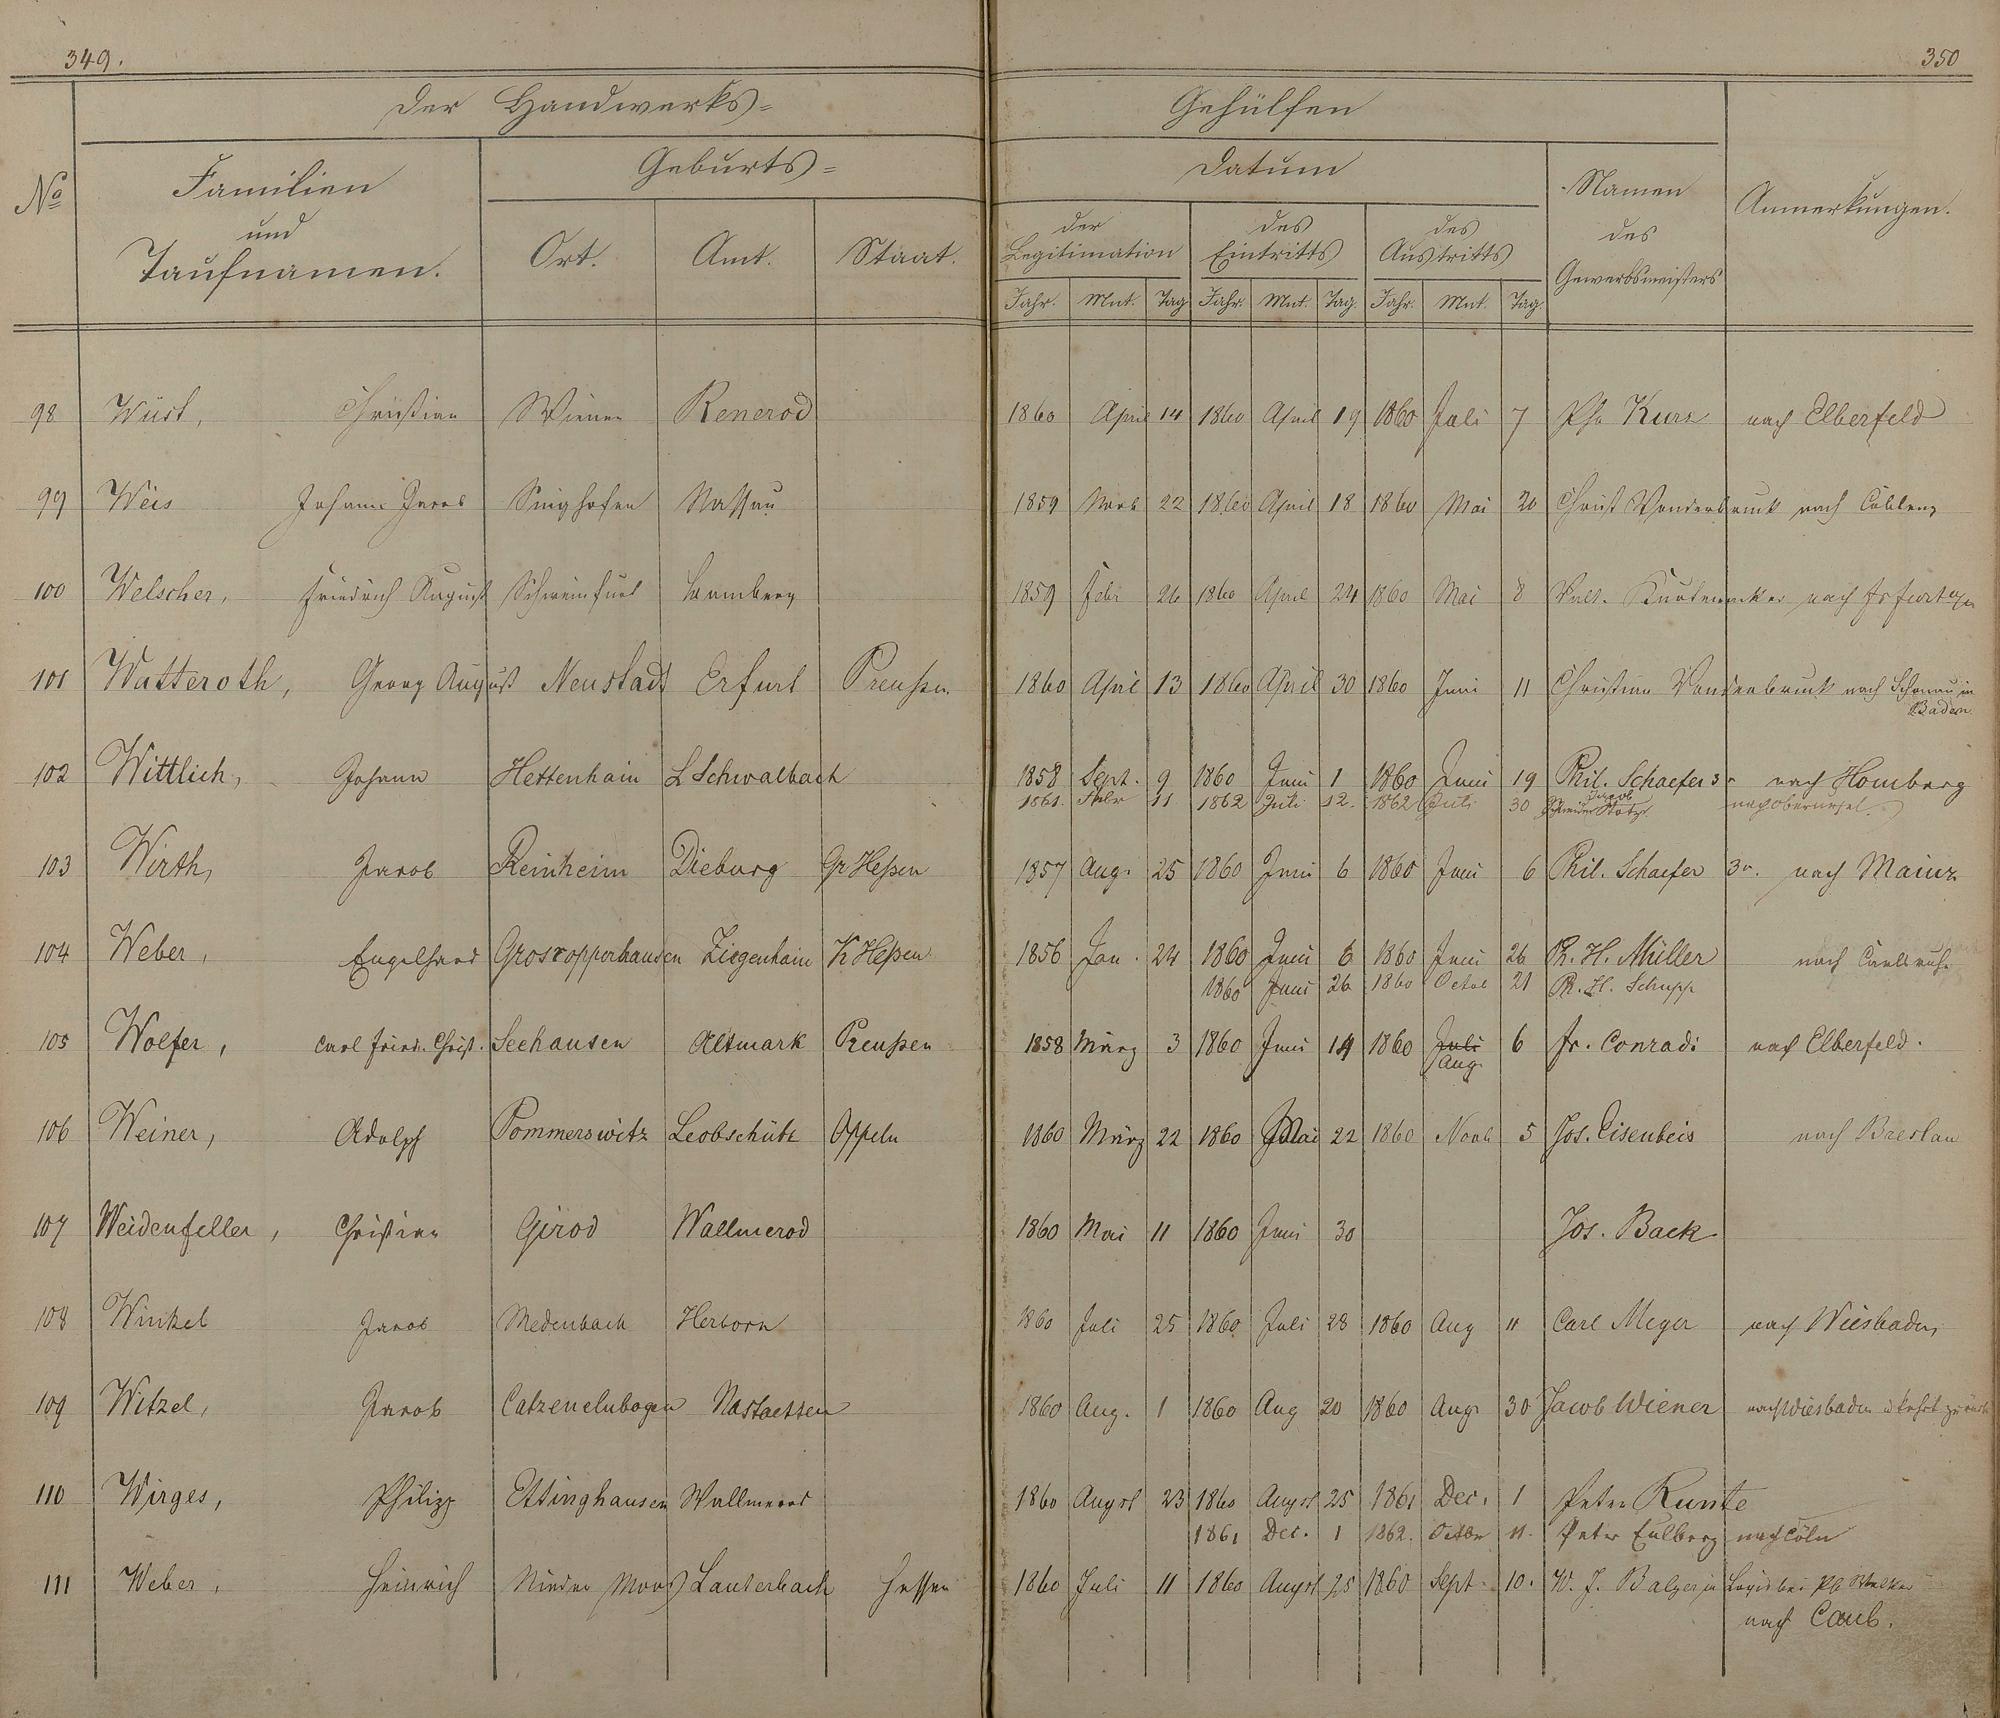 349.
350
der Handwerks=
Gehülfen
No
Familien
und
Taufnamen.
Geburts=
Ort. Amt. Staat.
Datum
der Legitimation
des Eintritts
des Austritts
Jahr. Mnt. Tag Jahr. Mnt. Tag. Jahr. Mnt. Tag.
Namen
des
Gewerbsmeisters
Anmerkungen.
98 Wüst, Christian Renerod 1860 April 14 1860 April 19 1860 Juli 7 Kurz nach Elberfeld
99 Weis Johann Jacob Singhofen Nassau 1859 Novb 22 1860 April 18 1860 Mai 20 Christ Vonderbruck nach Coblenz
100 Welscher, Friedrich August Schweinfurt Bamberg 1859 Febr 26 1860 April 24 1860 Mai 8 nach
101 Watteroth, Georg August Neustadt Erfurt Preußen 1860 April 13 1860 April 30 1860 Juni 11 Christian Vonderbruck nach Schönau in
Baden
102 Wittlich, Johann Hettenhain L Schwalbach 1858 Sept. 9 1860 Juni 1 1860 Juni 19 Phil. Schaefer 3r nach Homberg
1861. Febr 11 1862 Juli 12. 1862 Juli 30 Jacob nach Oberursel.
103 Wirth, Jacob Reinheim Dieburg Gr Heßen 1857 Aug. 25 1860 Juni 6 1860 Juni 6 Phil. Schaefer 3r. nach Mainz
104 Weber, Engelhard Grosropperhausen Ziegenhain K Heßen 1856 Jan. 24 1860 Juni 6 1860 Juni 26 Ph. H. Müller nach Carlsruhe
1860 Juni 26 1860 Octob 21 Ph. H. Schupp
105 Wolfer, Carl Fried. Christ. Seehausen Altmark Preußen 1858 März 3 1860 Juni 14 1860 Juli 6 Fr. Conradi nach Elberfeld.
Aug
106 Weiner, Adolph Pommerswitz Leobschütz Oppeln 1860 März 22 1860 Mai 22 1860 Novb 5 Jos. Eisenbeis nach Breslau
107 Weidenfeller, Christian Girod Wallmerod 1860 Mai 11 1860 Juni 30 Jos. Back
108 Winkel Jacob Medenbach Herborn 1860 Juli 25 1860 Juli 28 1860 Aug 11 Carl Meyer nach Wiesbaden
109 Witzel, Jacob Catzenelnbogen Nastaetten 1860 Aug. 1 1860 Aug 20 1860 Aug 30 Jacob Wiener nach Wiesbaden u kehrt zurück
110 Wirges, Philipp Ettinghausen Wallmerod 1860 Augst 23 1860 Augst 25 1861 Dec. 1 Peter Kunte
1861 Dec. 1 1862. Octbr 11. Peter Eulberg nach Cöln
111 Weber, Heinrich Nieder Moos Lauterbach Hessen 1860 Juli 11 1860 Augst 25 1860 Sept. 10. W. J. Balzer in Logis bei
nach Caub.